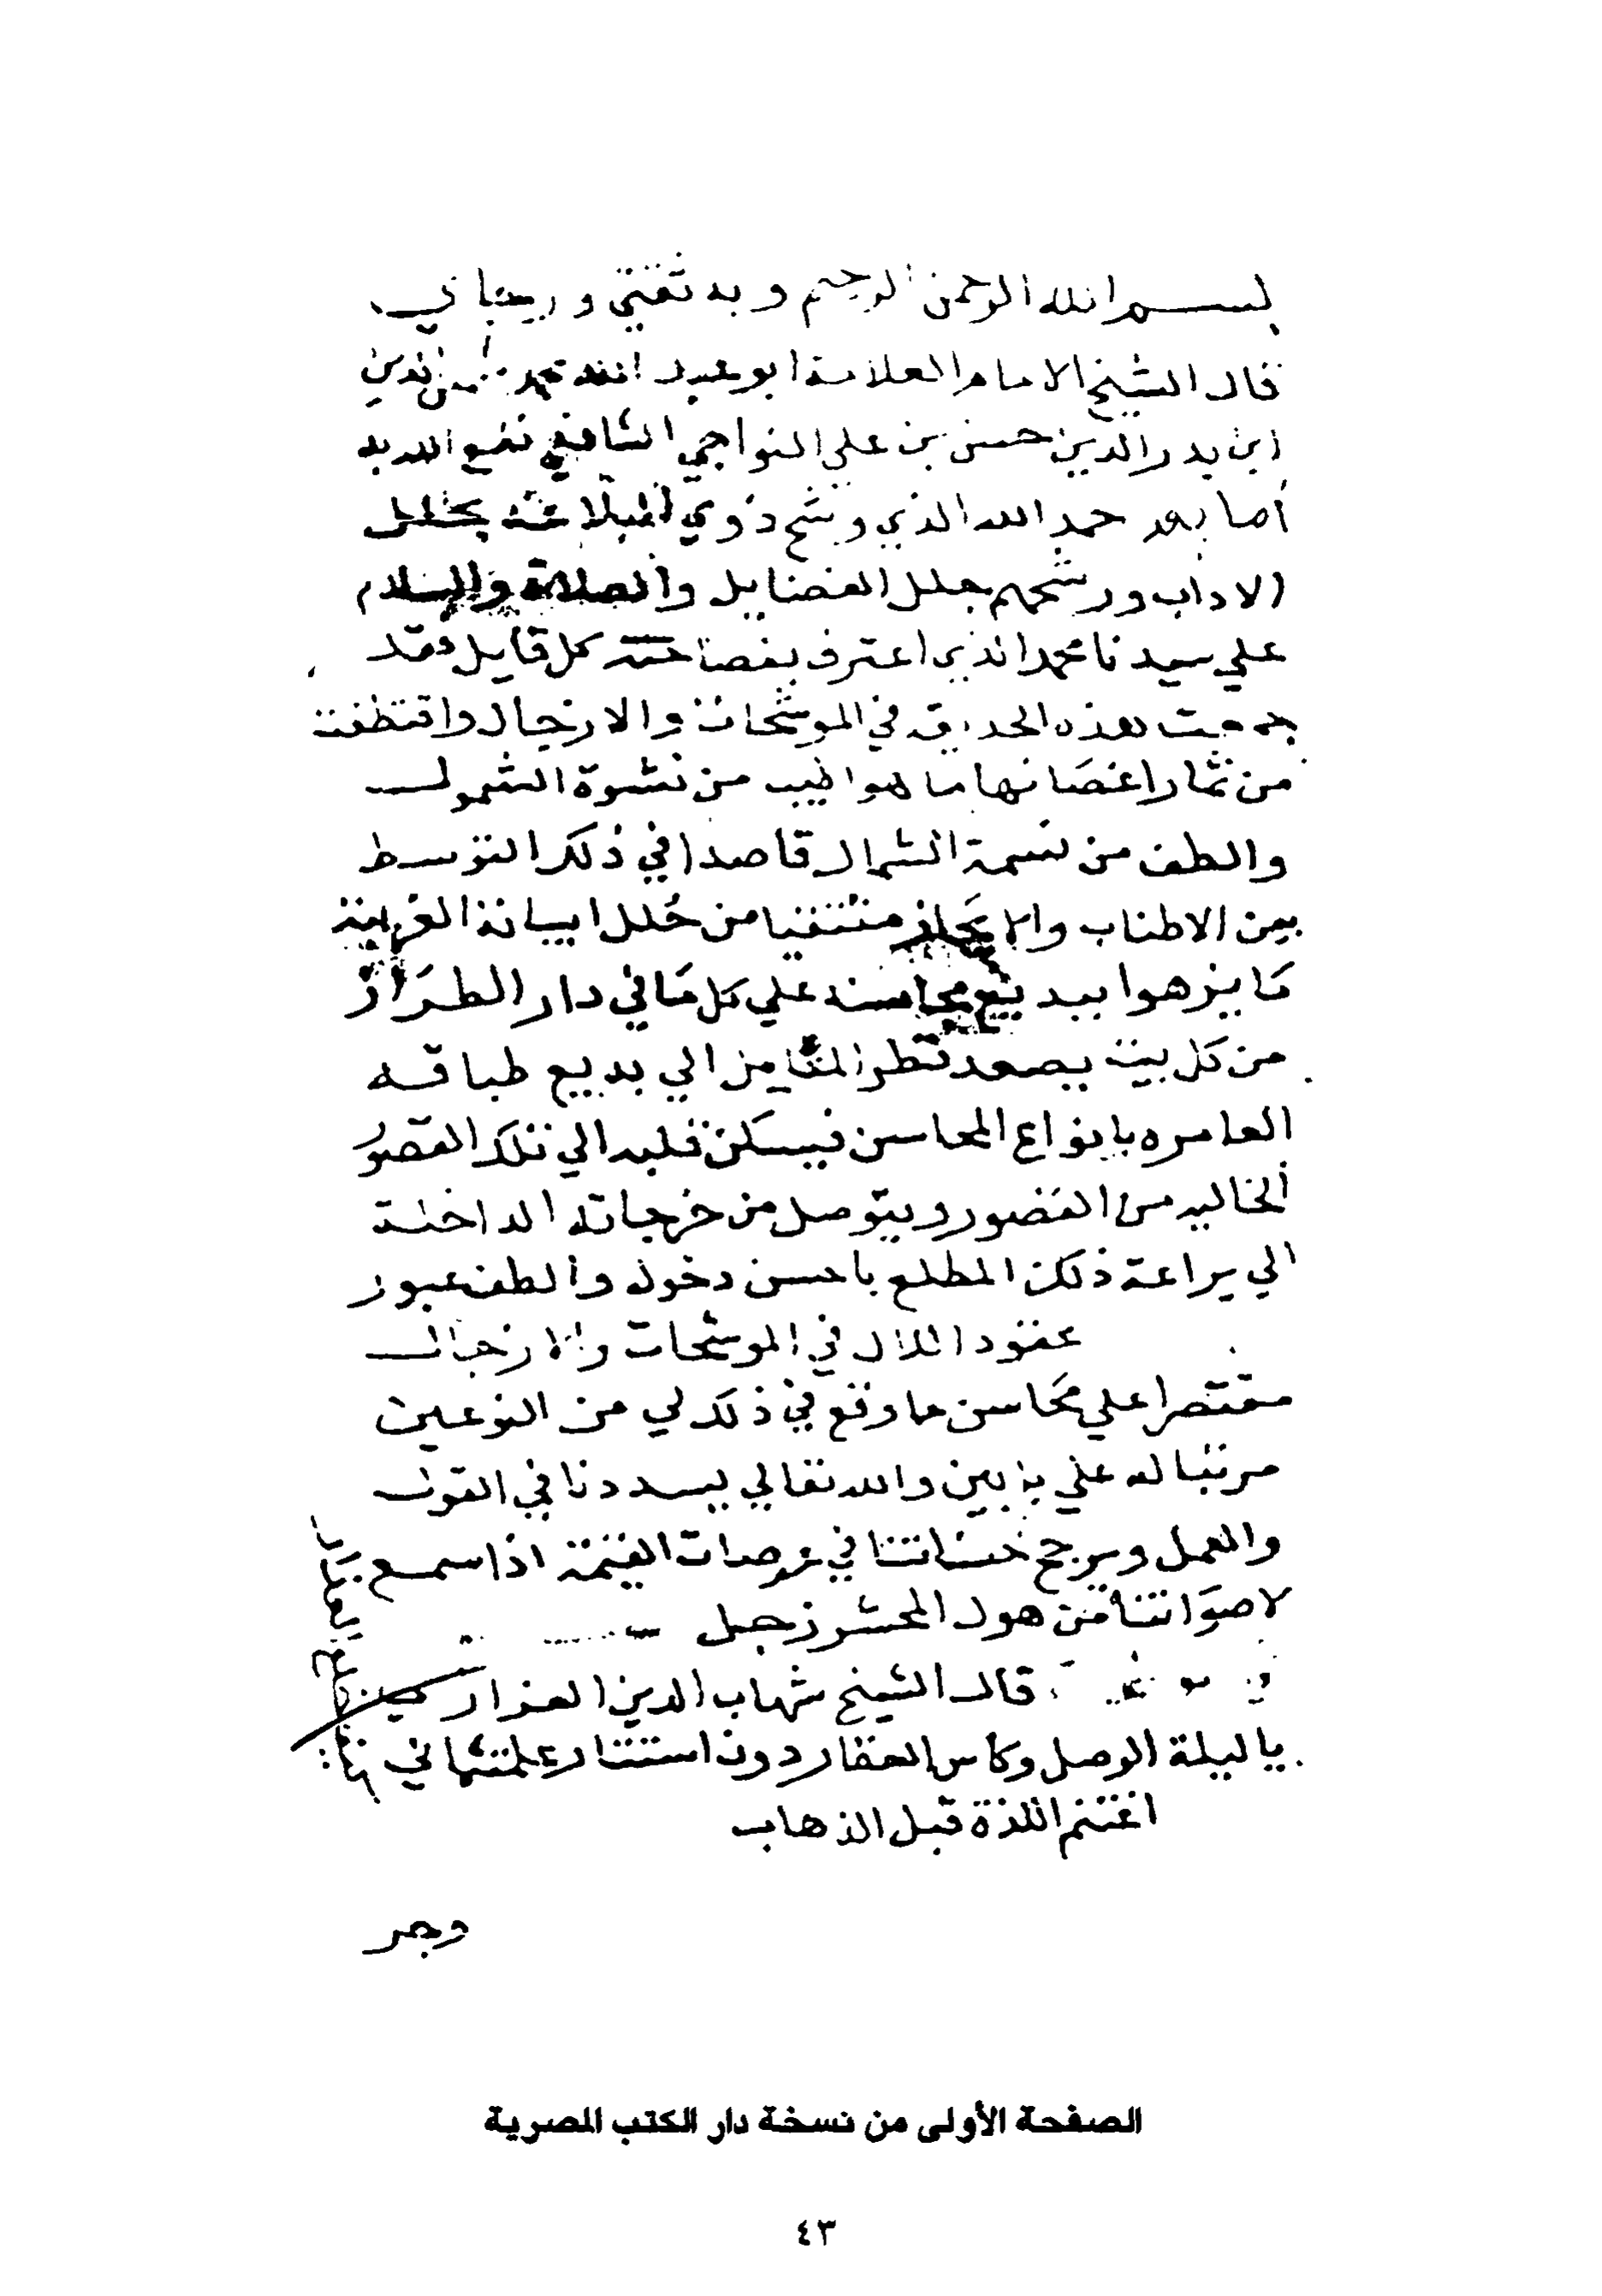 بسم الله الرحمن الرحيم وبه ثقتي ورجائي
قال الشيخ الامام العلامة ابو عبد الله محمد شمس الدين
ابن بدر الدين حسن بن علي النواجي الشافعي نفع الله به
اما بعد حمد الله الذي وشح ذوي البلاغة بحلل
الاداب ورشحهم جلل الفضايل والصلاة والسلام
علي سيدنا محمد الذي اعترف بفصاحته كل قايل فقد
جمعت هذه الحديقة في الموشحات والازجال واقتطفت
من ثمار اغصانها ما هو اطيب من نشوة الشمول
والطف من نسمة الشمال قاصدا في ذلك التوسط
بين الاطناب والايجاز منتقيا من حلل ابياته الغريبة
ما يزهوا ببديع محاسنه علي كل ما في دار الطراز
من كل بيت يصعد نظر المتامل الي بديع طباقه
العامره بانواع المحاسن فيسكن قلبه الي تلك القصور
الخاليه من القصور ويتوصل من خرجاته الداخلة
الي براعة ذلك المطلع باحسن دخول والطف عبور
عقود اللال في الموشحات والازجال
مقتصرا علي محاسن ما وقع في ذلك لي من النوعين
مرتبا له علي بابين والله تعالي يسددنا في القول
والعمل ويرجح حسناتنا في عرصات القيمة اذا سمع
لاصواتنا من هول المحشر زجل
قال الشيخ شهاب الدين العزازي
يا ليلة الوصل وكاس العقار دون استتار علمتماني
اغتنم اللذة قبل الذهاب
وجر
الصفحة الأولى من نسخة دار الكتب المصرية
٤٣